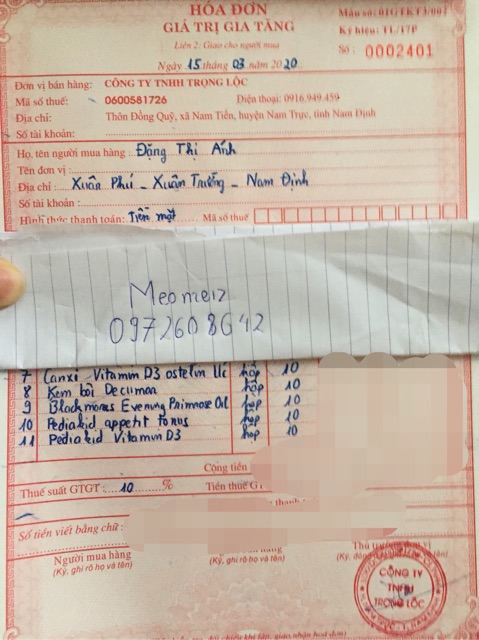 HÓA ĐƠN
GIÁ TRỊ GIA TĂNG
Mẫu số: 01GTKT3/001
Liên 2: Giao cho người mua
Ký hiệu: TL/17P
Số : 0002401
Ngày 15 tháng 03 năm 2020
Đơn vị bán hàng: CÔNG TY TNHH TRỌNG LỘC
Mã số thuế: 0600581726 Điện thoại: 0916.949.459
Địa chỉ: Thôn Đồng Quỹ, xã Nam Tiến, huyện Nam Trực, tỉnh Nam Định
Số tài khoản:
Họ, tên người mua hàng: Đặng Thị Ánh
Tên đơn vị
Địa chỉ: Xuân Phú - Xuân Trường - Nam Định
Số tài khoản:
Hình thức thanh toán: Tiền mặt Mã số thuế
Meomeiz
0972608642
7 Canxi Vitamin D3 ostelin Úc hộp 10
8 Kem bôi Decumar hộp 10
9 Blackmores Evening Primrose Oil hộp 10
10 Pediakid appetit tonus hộp 10
11 Pediakid Vitamin D3 hộp 10
Cộng tiền
Thuế suất GTGT: 10 % Tiền thuế GT
thanh
Số tiền viết bằng chữ:
Người mua hàng
(Ký, ghi rõ họ và tên)
CÔNG TY
TNHH
TRỌNG LỘC